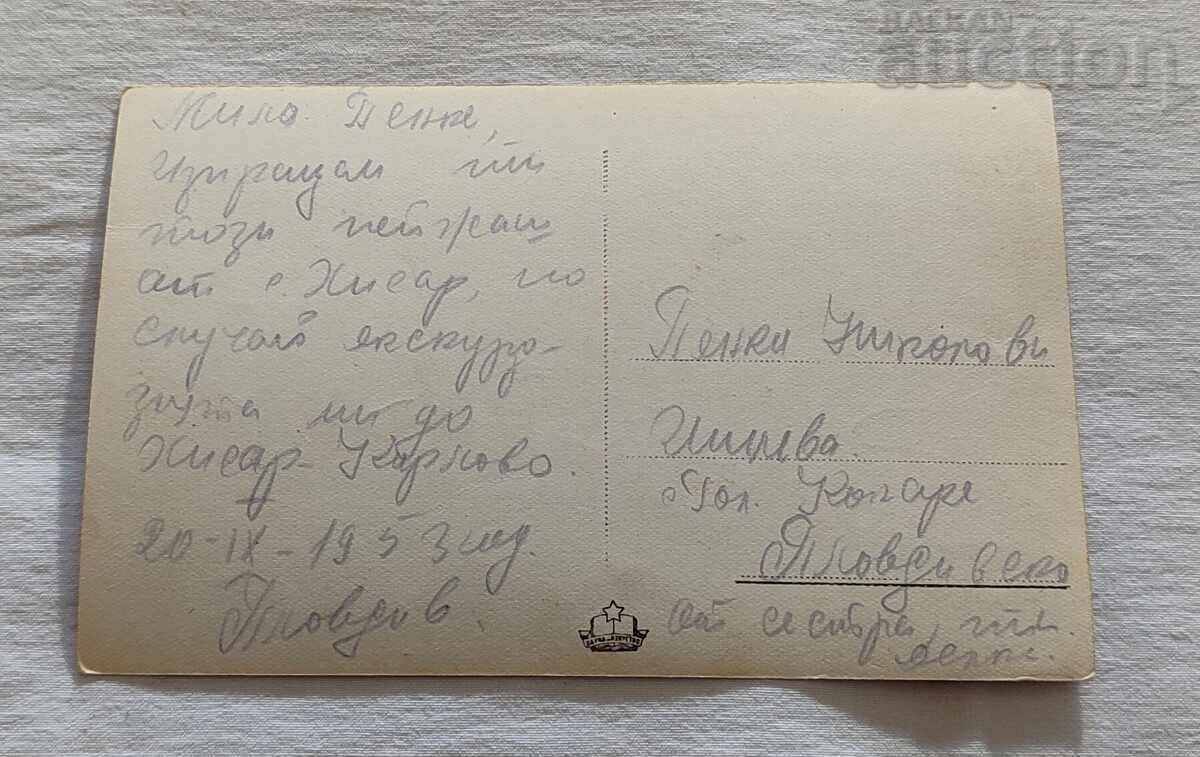 BALKAN
auction
Мила Пенке,
Изпращам ти
този пейзаж
от с. Хисар, по
случай екскурз-
зията ми до
Хисар - Карлово.
20-IX-1953 год.
Пловдив.
Пенка Николови
с Гол. Конаре
Пловдивско
от сестра ти
НАУКА и ИЗКУСТВО